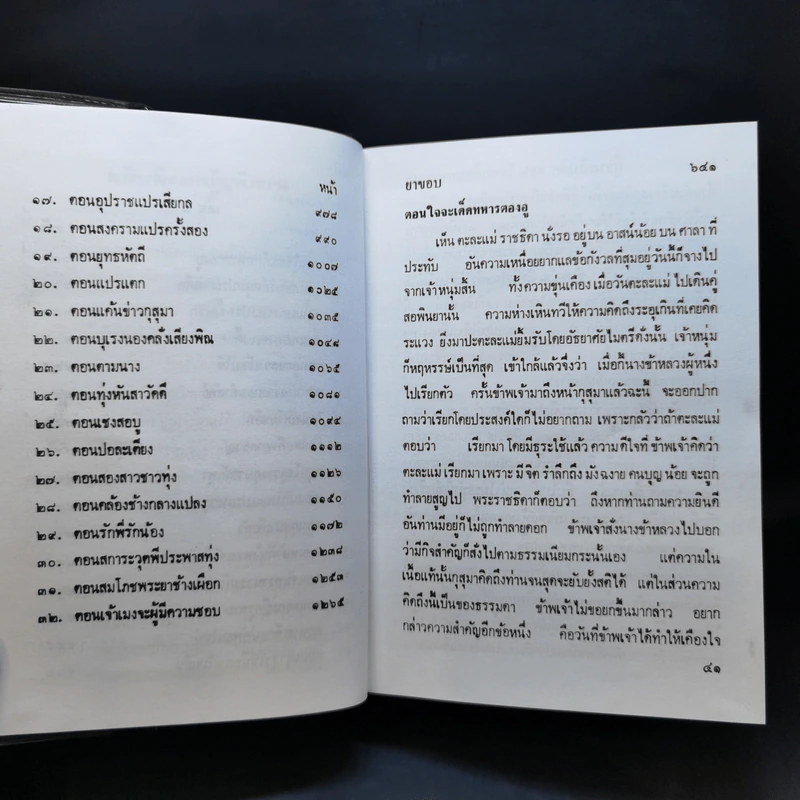 หน้า
๑๗. ตอนอุปราชแปรเสียกล ๙๗๘
๑๘. ตอนสงครามแปรครั้งสอง ๙๙๐
๑๙. ตอนยุทธหัตถี ๑๐๐๗
๒๐. ตอนแปรแตก ๑๐๒๕
๒๑. ตอนแค้นข่าวกุสุมา ๑๐๓๕
๒๒. ตอนบุเรงนองคลั่งเสียงพิณ ๑๐๔๘
๒๓. ตอนตามนาง ๑๐๖๕
๒๔. ตอนทุ่งหันสาวัตดี ๑๐๘๑
๒๕. ตอนเชงสอบู ๑๐๙๔
๒๖. ตอนปอละเตียง ๑๑๑๒
๒๗. ตอนสองสาวชาวทุ่ง ๑๑๒๖
๒๘. ตอนคล้องช้างกลางแปลง ๑๑๕๐
๒๙. ตอนรักพี่รักน้อง ๑๑๗๒
๓๐. ตอนสการะวุตพีประพาสทุ่ง ๑๒๓๘
๓๑. ตอนสมโภชพระยาช้างเผือก ๑๒๕๓
๓๒. ตอนเจ้าเมงจะผู้มีความชอบ ๑๒๖๕
ยาขอบ ๖๔๑
ตอนใจจะเด็ดทหารตองอู
เห็น ตะละแม่ ราชธิดา นั่งรอ อยู่บน อาสน์น้อย บน ศาลา ที่
ประทับ อันความเหนื่อยยากแลข้อกังวลที่สุมอยู่วันนี้ก็จางไป
จากเจ้าหนุ่มสิ้น ทั้งความขุ่นเคือง เมื่อวันตะละแม่ ไปเดินคู่
สอพินยานั้น ความห่างเหินทวีให้ความคิดถึงระอุเกินที่เคยคิด
ระแวง ยิ่งมาปะตะละแม่ยิ้มรับโดยอัธยาศัยไมตรีดั่งนั้น เจ้าหนุ่ม
ก็หฤหรรษ์เป็นที่สุด เข้าใกล้แล้วจึ่งว่า เมื่อกี้นางข้าหลวงผู้หนึ่ง
ไปเรียกตัว ครั้นข้าพเจ้ามาถึงหน้ากุสุมาแล้วฉะนี้ จะออกปาก
ถามว่าเรียกโดยประสงค์ใดก็ไม่อยากถาม เพราะกลัวว่าถ้าตะละแม่
ตอบว่า เรียกมา โดยมีธุระใช้แล้ว ความ ดีใจที่ ข้าพเจ้าคิดว่า
ตะละแม่ เรียกมา เพราะ มี จิต รำลึกถึง มังฉงาย คนบุญ น้อย จะถูก
ทำลายสูญไป พระราชธิดาก็ตอบว่า ถึงหากท่านถามความยินดี
อันท่านมีอยู่ก็ไม่ถูกทำลายดอก ข้าพเจ้าสั่งนางข้าหลวงไปบอก
ว่ามีกิจสำคัญก็สั่งไปตามธรรมเนียมกระนั้นเอง แต่ความใน
เนื้อแท้นั้นกุสุมาคิดถึงท่านจนสุดจะยับยั้งสติได้ แต่ในส่วนความ
คิดถึงนี้เป็นของธรรมดา ข้าพเจ้าไม่ขอยกขึ้นมากล่าว อยาก
กล่าวความสำคัญอีกข้อหนึ่ง คือวันที่ข้าพเจ้าได้ทำให้เคืองใจ
๔๑